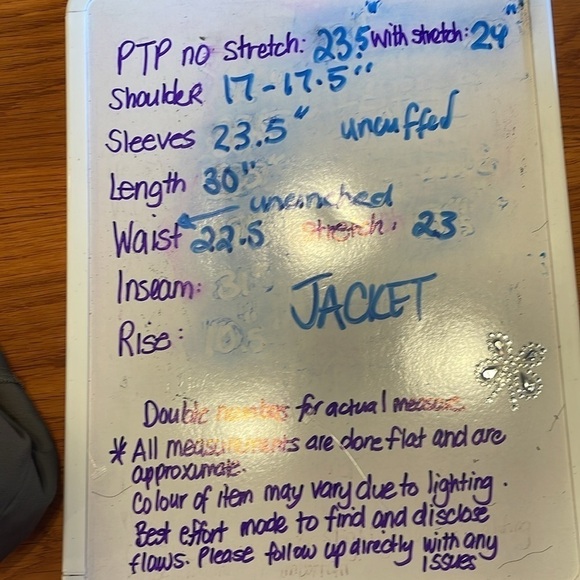 PTP no stretch: 23.5" with stretch: 24"
Shoulder 17-17.5"
Sleeves 23.5" uncuffed
Length 30"
uncinched
Waist 22.5 stretch: 23
Inseam:
Rise:
JACKET
Double numbers for actual measure
* All measurements are done flat and are
approximate.
Colour of item may vary due to lighting.
Best effort made to find and disclose
flaws. Please follow up directly with any
issues